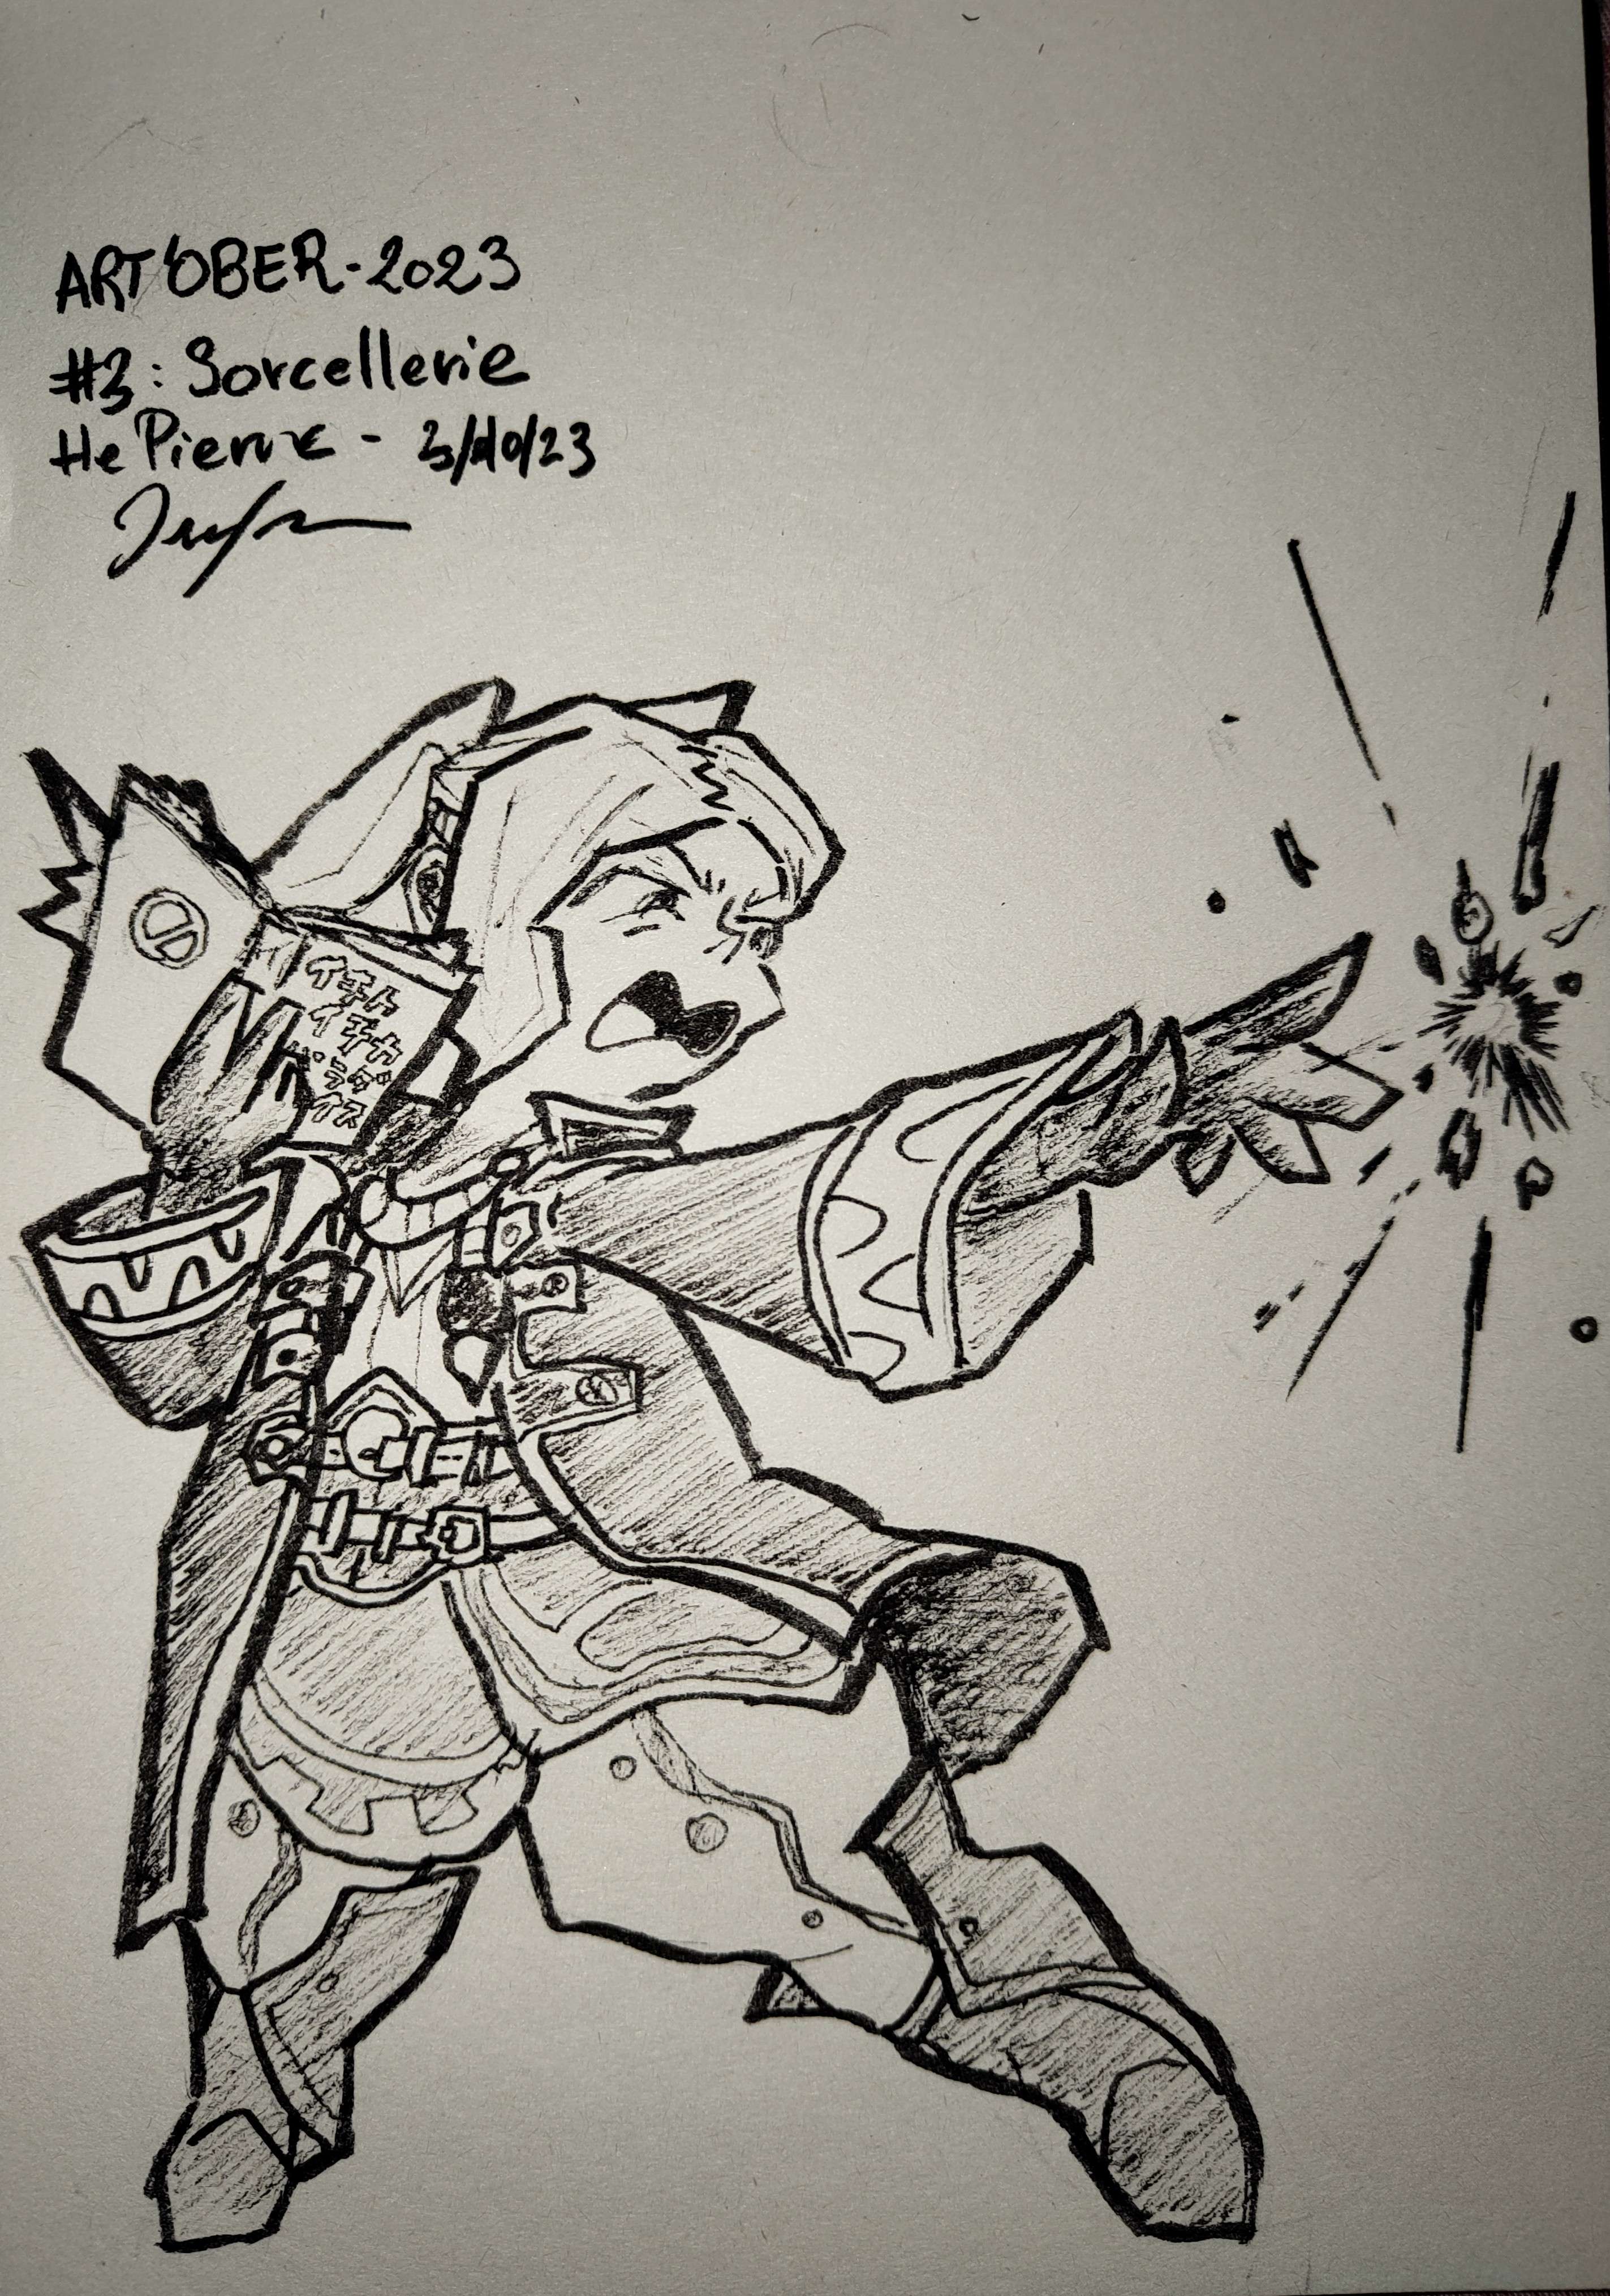 ART'OBER-2023
#3: Sorcellerie
He Pierre - 3/10/23
イチト
イチカ